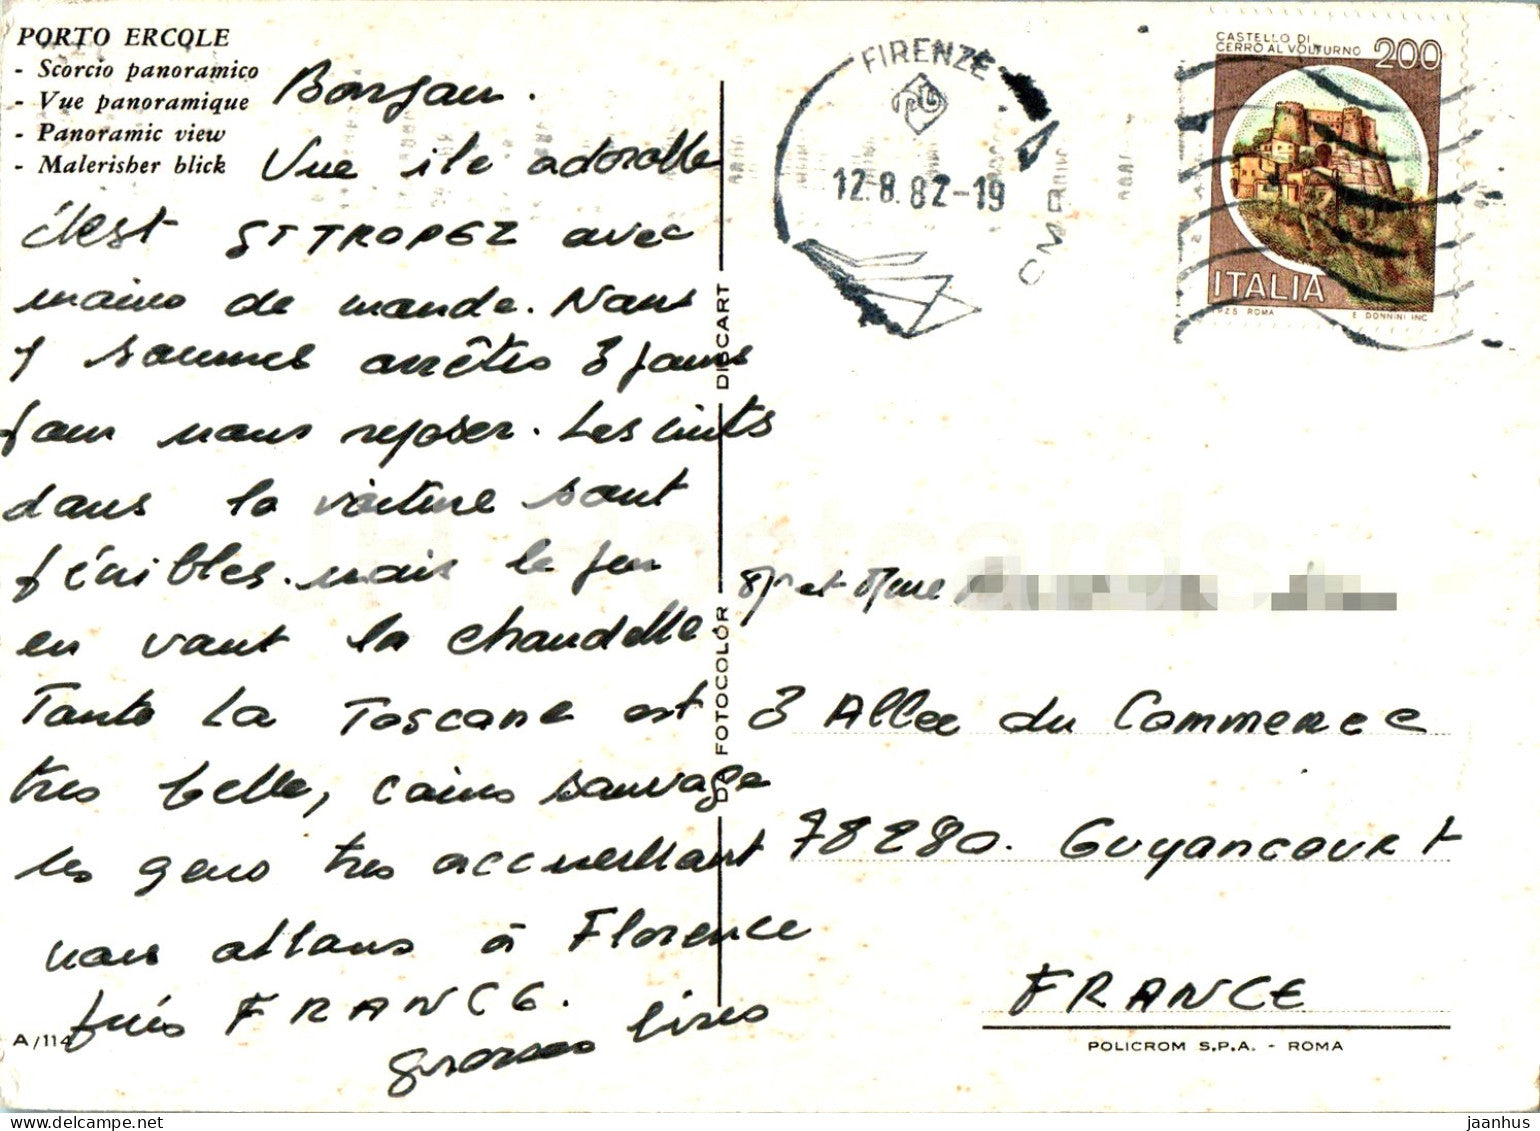 PORTO ERCOLE
- Scorcio panoramico
- Vue panoramique
- Panoramic view
- Malerisher blick
Bonjour.
Vue ile adorable
c'est ST TROPEZ avec
moins de monde. Nous
y sommes arrêtés 3 jours
pour nous reposer. Les nuits
dans la voiture sont
pénibles. mais le jeu
en vaut la chandelle
Toute La Toscane est
tres belle, sauvage
les gens tres accueillant
nous allons à Florence
puis FRANCE.
grosses bises
A/114
DA FOTOCOLOR DISCART
FIRENZE
12.8.82-19
CMP
CASTELLO DI
CERRO AL VOLTURNO 200
ITALIA
P.Z.S. ROMA E. DONNINI INC.
Mr et Mme
3 Allee du Commerce
78280. Guyancourt
FRANCE
POLICROM S.P.A. - ROMA
JH Postcards
www.delcampe.net
jaanhus